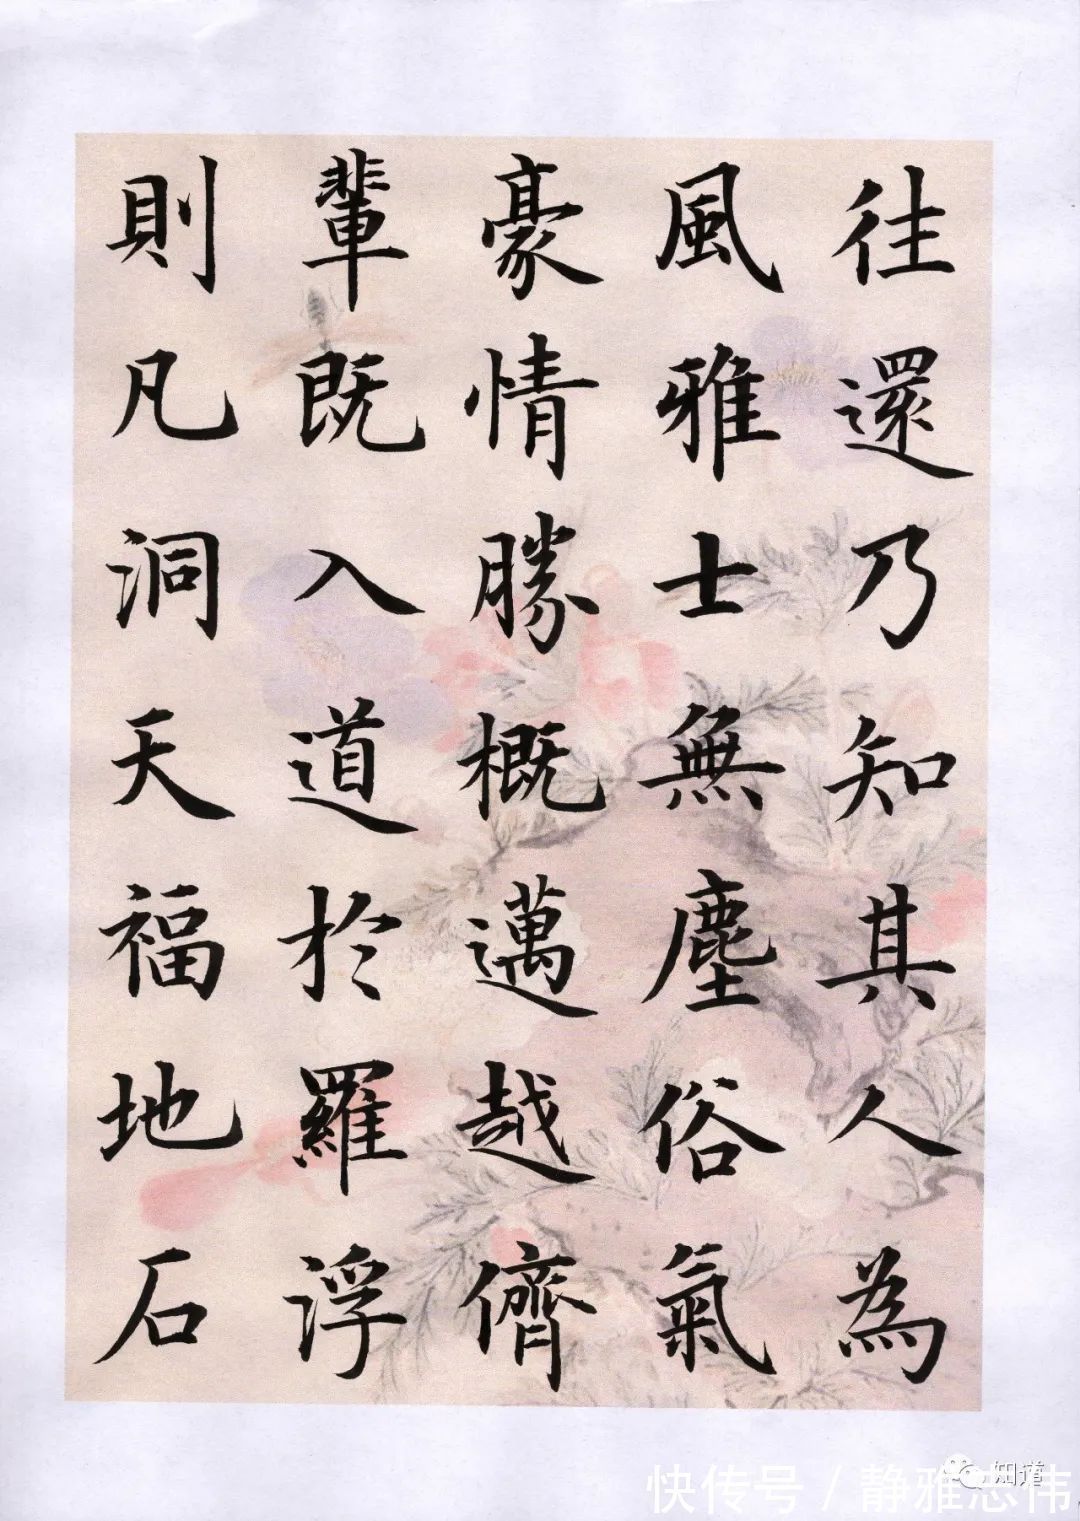 往還乃知其人為
風雅士無塵俗氣
豪情勝概邁越儕
輩既入道於羅浮
則凡洞天福地石
知道
快传号／静雅志伟